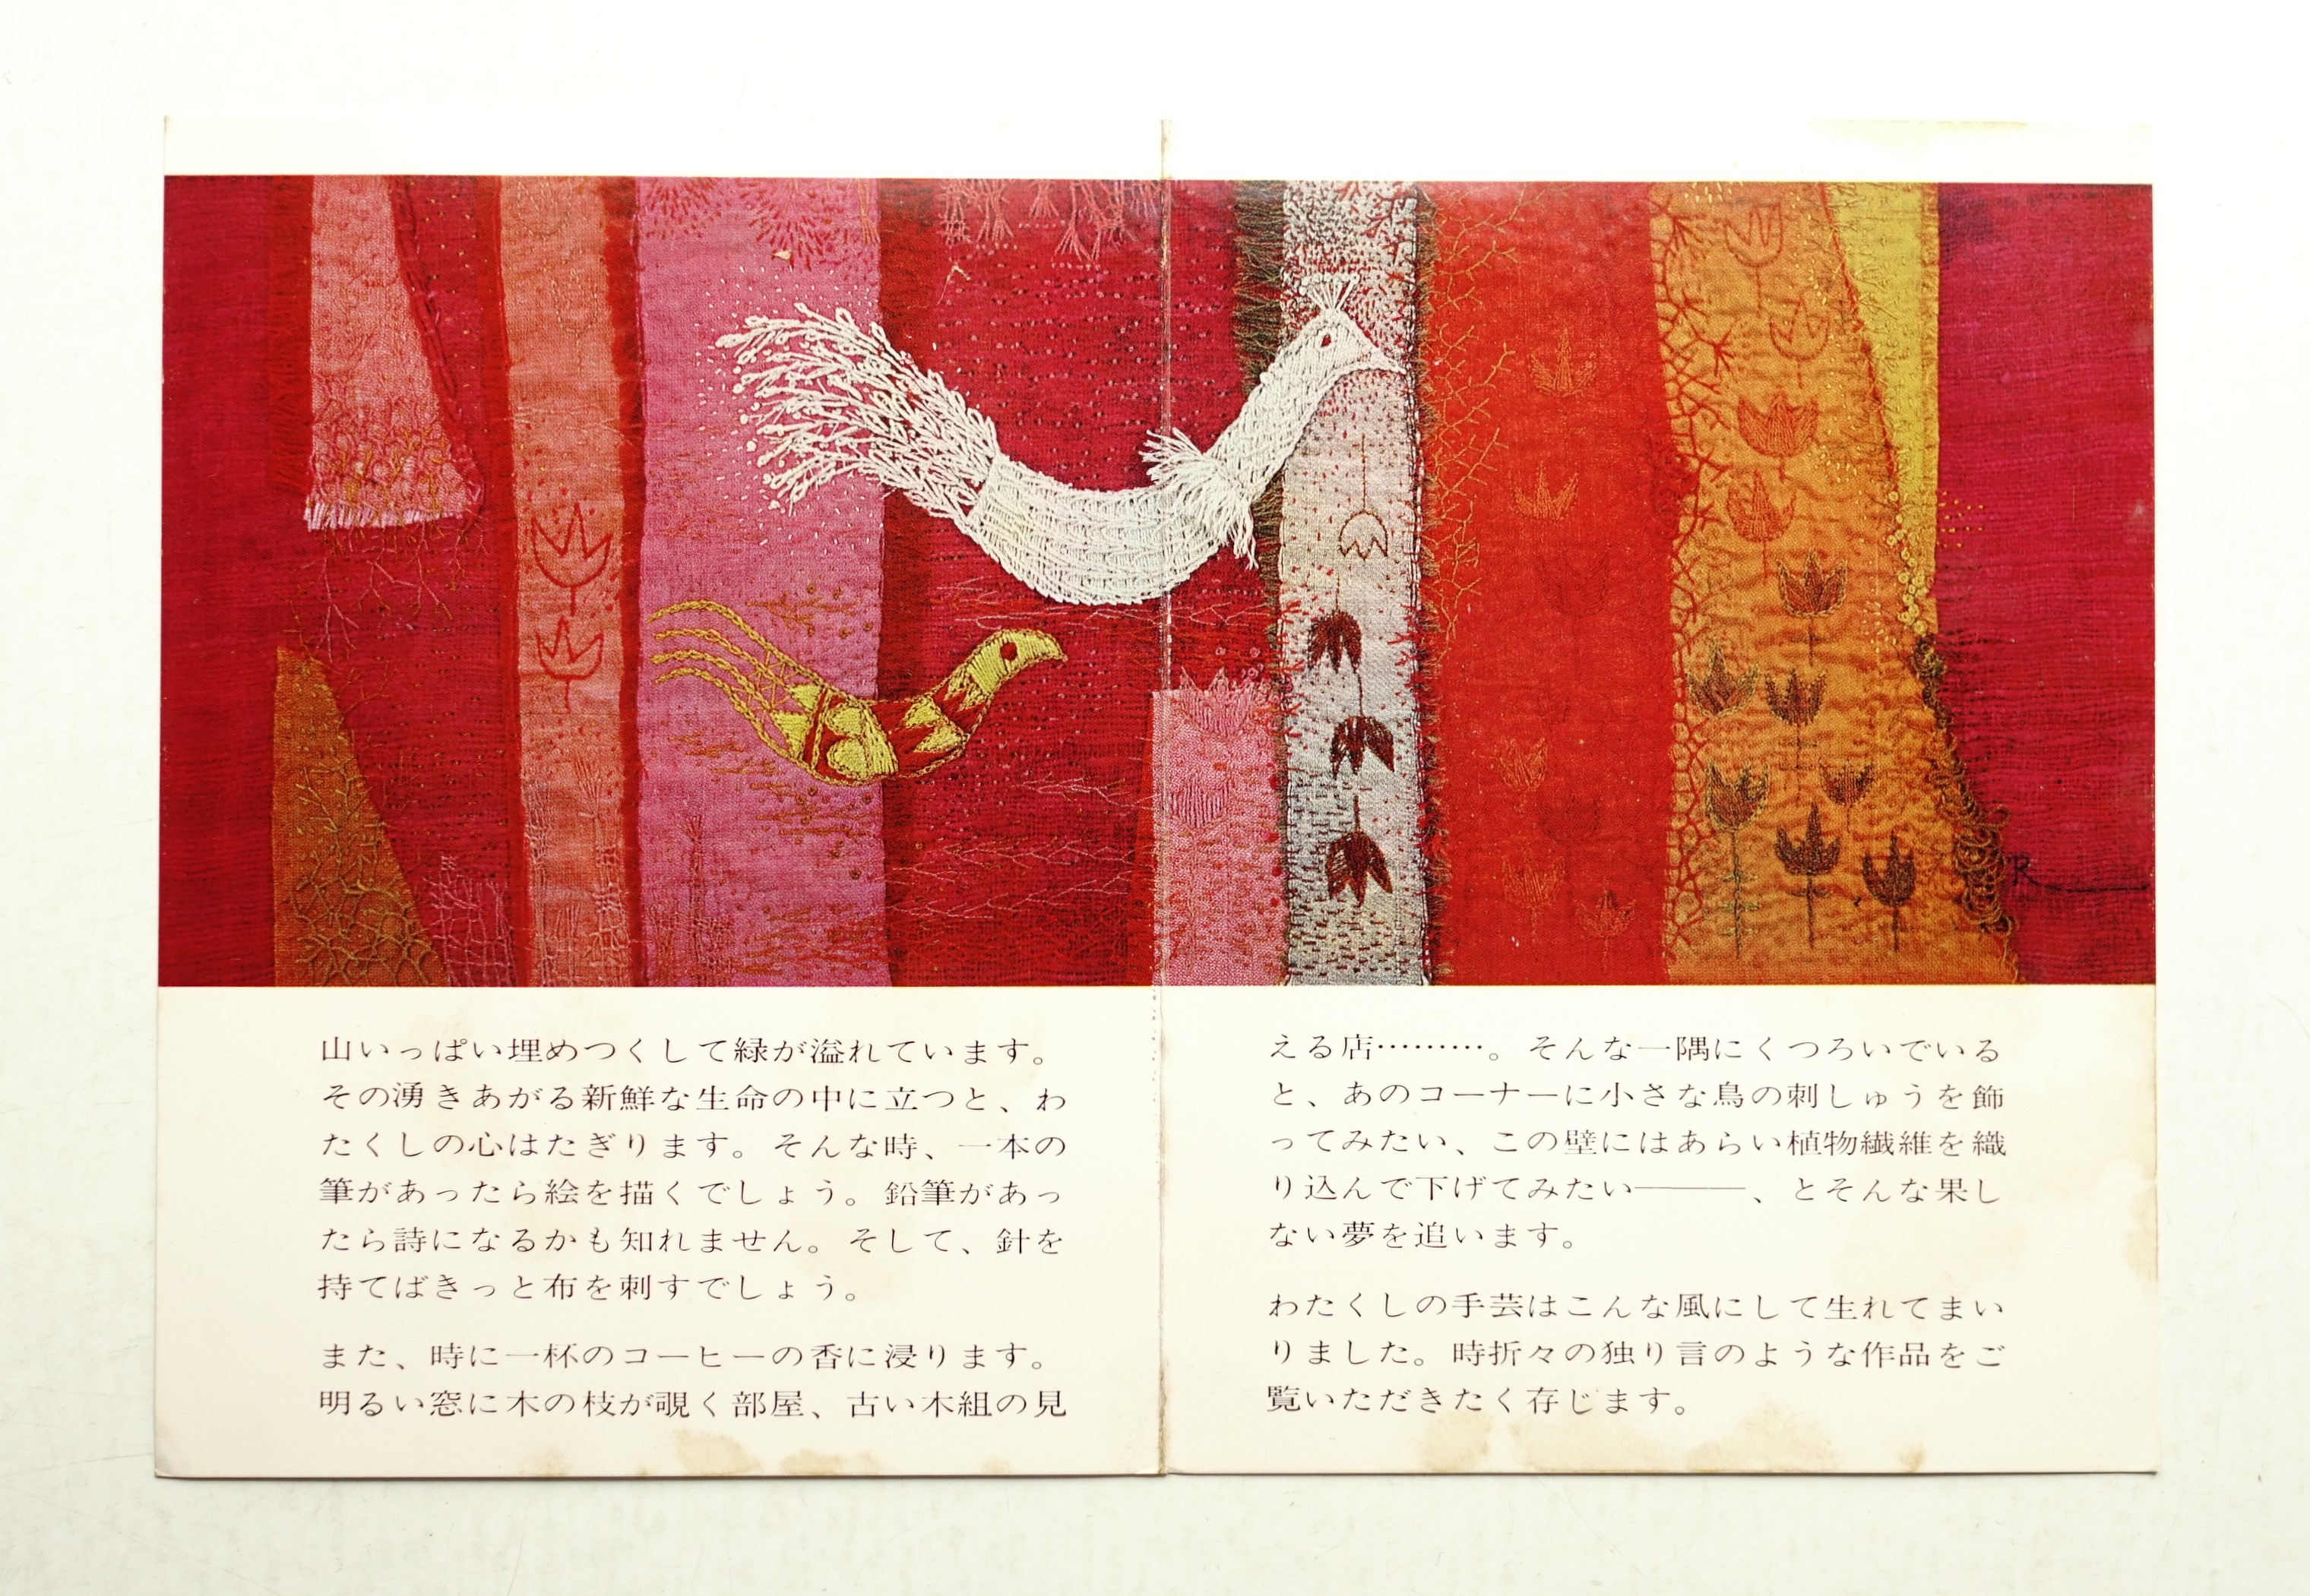 山いっぱい埋めつくして緑が溢れています。
その湧きあがる新鮮な生命の中に立つと、わ
たくしの心はたぎります。そんな時、一本の
筆があったら絵を描くでしょう。鉛筆があっ
たら詩になるかも知れません。そして、針を
持てばきっと布を刺すでしょう。
また、時に一杯のコーヒーの香に浸ります。
明るい窓に木の枝が覗く部屋、古い木組の見
える店………。そんな一隅にくつろいでいる
と、あのコーナーに小さな鳥の刺しゅうを飾
ってみたい、この壁にはあらい植物繊維を織
り込んで下げてみたい———、とそんな果し
ない夢を追います。
わたくしの手芸はこんな風にして生れてまい
りました。時折々の独り言のような作品をご
覧いただきたく存じます。
R